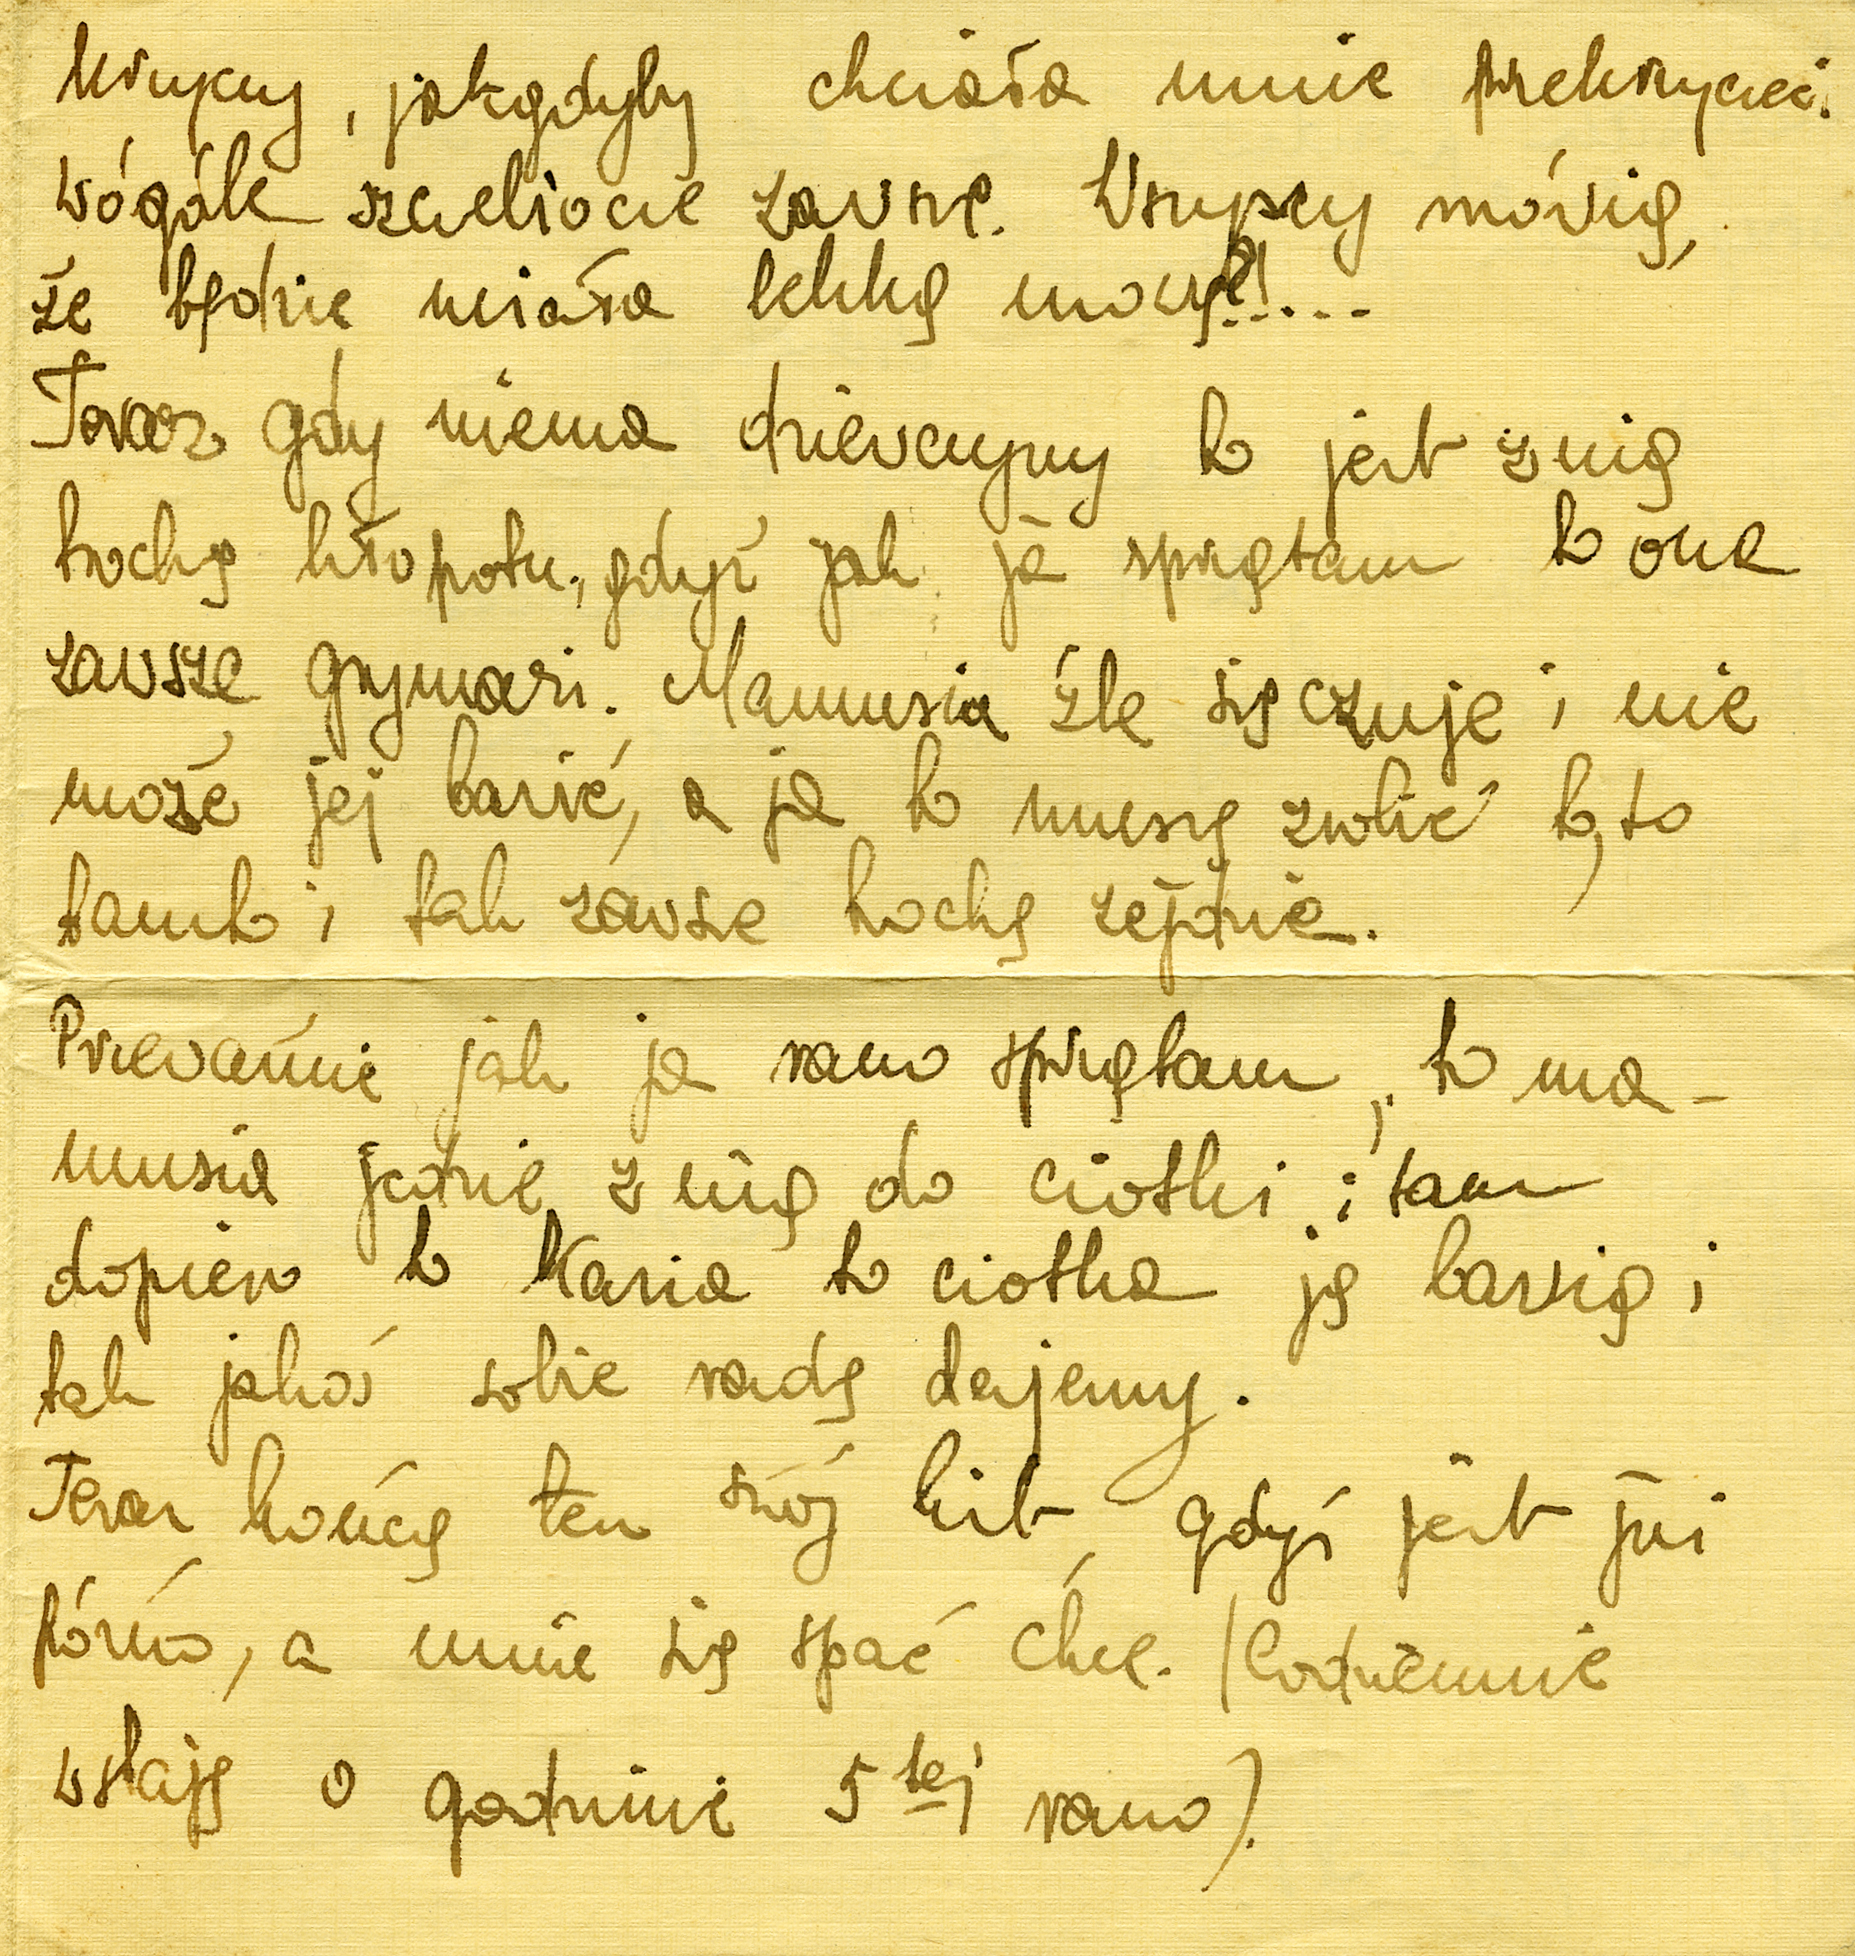 krzyczy, jakgdyby chciała mnie przekrzyczeć.
wógóle szczebiocze zawsze. Wszyscy mówią,
że będzie miała lekką mowę?!...
Teraz gdy niema dziewczyny to jest z nią
trochę kłopotu, gdyż jak ja sprzątam to ona
zawsze grymasi. Mamusia źle się czuje i nie
może jej bawić, a ja to muszę zrobić to, to
tamto i tak zawsze trochę zejdzie.
Przeważnie jak ja rano sprzątam, to ma-
musia jedzie z nią do ciotki i tam
dopiero to Kasia to ciotka ją bawią i
tak jakoś sobie radę dajemy.
Teraz kończę ten swój list, gdyż jest już
późno, a mnie się spać chce. (Codziennie
wstaję o godzinie 5tej rano).